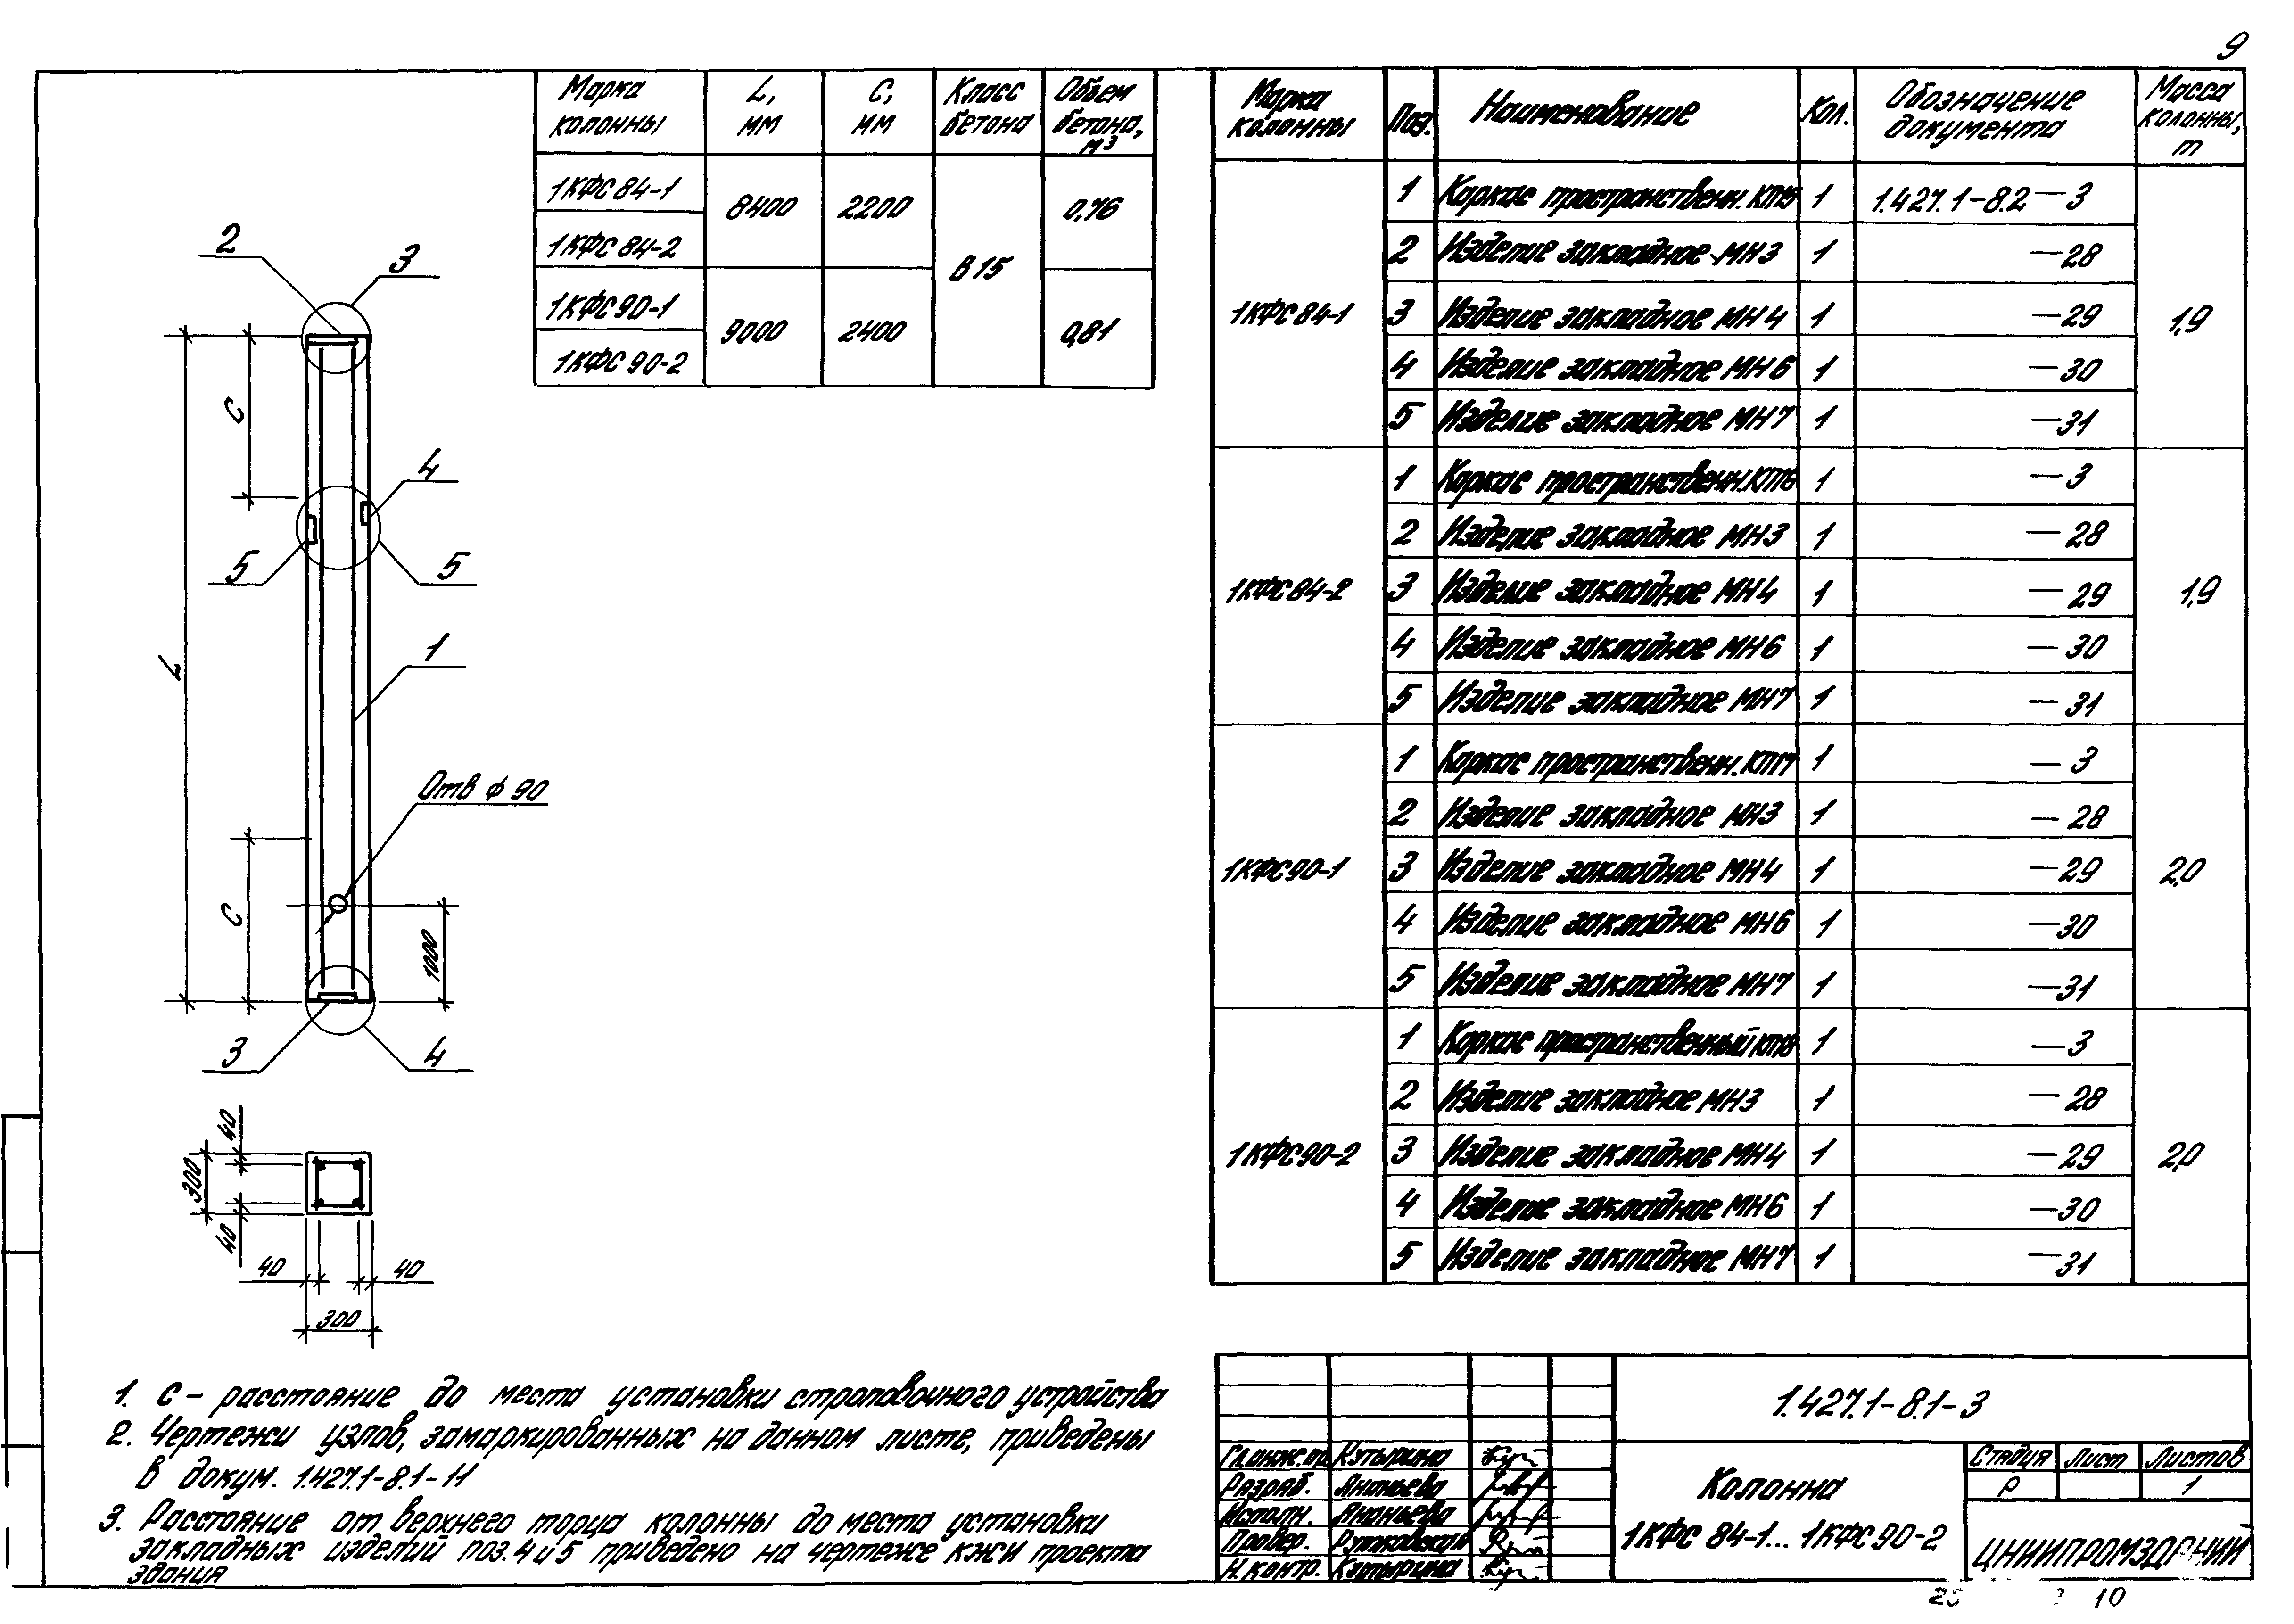 9
Марка колонны | L, мм | С, мм | Класс бетона | Объем бетона, м3
1КФС 84-1 | 8400 | 2200 | В 15 | 0,76
1КФС 84-2
1КФС 90-1 | 9000 | 2400 | 0,81
1КФС 90-2
2
3
С
4
5
5
L
1
Отв ϕ 90
С
1000
3
4
40
300
40
40
40
300
Марка колонны | Поз. | Наименование | Кол. | Обозначение документа | Масса колонны, т
1КФС 84-1 | 1,9
1 | Каркас пространственн. КП15 | 1 | 1.427.1-8.2 — 3
2 | Изделие закладное МН3 | 1 | —28
3 | Изделие закладное МН4 | 1 | —29
4 | Изделие закладное МН6 | 1 | —30
5 | Изделие закладное МН7 | 1 | —31
1КФС 84-2 | 1,9
1 | Каркас пространственн. КП16 | 1 | —3
2 | Изделие закладное МН3 | 1 | —28
3 | Изделие закладное МН4 | 1 | —29
4 | Изделие закладное МН6 | 1 | —30
5 | Изделие закладное МН7 | 1 | —31
1КФС90-1 | 2,0
1 | Каркас пространственн. КП17 | 1 | —3
2 | Изделие закладное МН3 | 1 | —28
3 | Изделие закладное МН4 | 1 | —29
4 | Изделие закладное МН6 | 1 | —30
5 | Изделие закладное МН7 | 1 | —31
1КФС90-2 | 2,0
1 | Каркас пространственный КП18 | 1 | —3
2 | Изделие закладное МН3 | 1 | —28
3 | Изделие закладное МН4 | 1 | —29
4 | Изделие закладное МН6 | 1 | —30
5 | Изделие закладное МН7 | 1 | —31
1. С – расстояние до места установки строповочного устройства
2. Чертежи узлов, замаркированных на данном листе, приведены
в докум. 1.427.1-8.1-11
3. Расстояние от верхнего торца колонны до места установки
закладных изделий поз. 4 и 5 приведено на чертеже КЖИ проекта
здания
1.427.1-8.1-3
Гл.инж.пр. Кутырина
Разраб. Ананьева
Исполн. Ананьева
Провер. Рутковская
Н.контр. Кутырина
Колонна
1КФС 84-1... 1КФС 90-2
Стадия | Лист | Листов
Р | 1
ЦНИИПРОМЗДАНИЙ
10